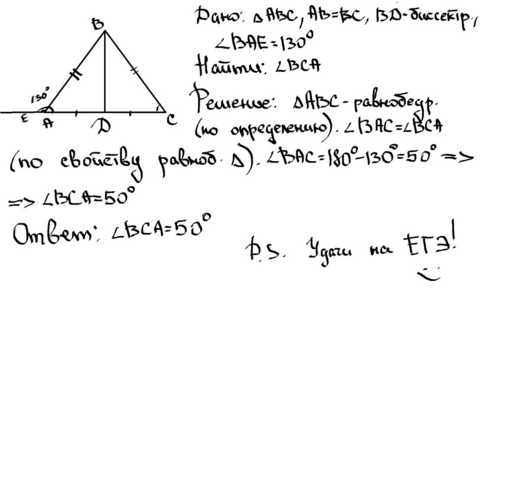 Дано: △ABC, AB=BC, BD-биссектр.,
∠BAE=130°
Найти: ∠BCA
Решение: △ABC-равнобедр.
(по определению). ∠BAC=∠BCA
(по свойству равноб. △). ∠BAC=180°-130°=50° =>
=> ∠BCA=50°
Ответ: ∠BCA=50°
P.S. Удачи на ЕГЭ!
B
130°
E A D C